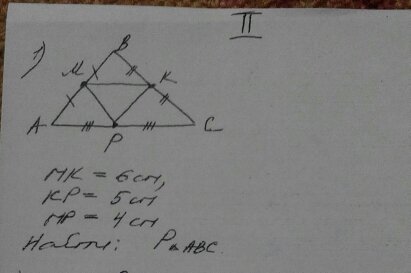 II
1)
B
M K
A P C
MK = 6 см,
KP = 5 см
MP = 4 см
Найти: P△ABC.